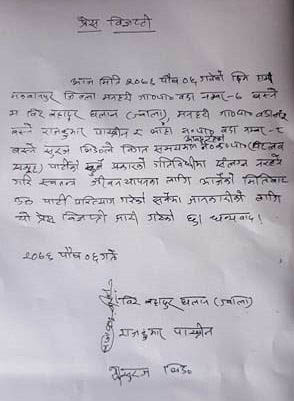 प्रेस विज्ञप्ती
आज मिति २०७६ पौष ०६ गतेका दिन
मकवानपुर जिल्ला मनहरी गा०पा० वडा नम्बर-६ बस्ने
म विर बहादुर घलान (ज्वाला) मनहरी गा०पा० वडा
बस्ने राजकुमार पाख्रीन र न०पा० वडा नम्बर-८
बस्ने सुरज विगत समयमा
पार्टीको सबै प्रकारको गतिविधीमा संलग्न
गरि स्वतन्त्र जीवनयापनका लागि आजैका मितिबाट
उक्त पार्टी परित्याग गरेको सबैमा जानकारीको लागि
यो प्रेस विज्ञप्ती जारी गरेको छु। धन्यवाद।
२०७६ पौष ०६ गते
विर बहादुर घलान (ज्वाला)
राजकुमार पाख्रीन
सुरज